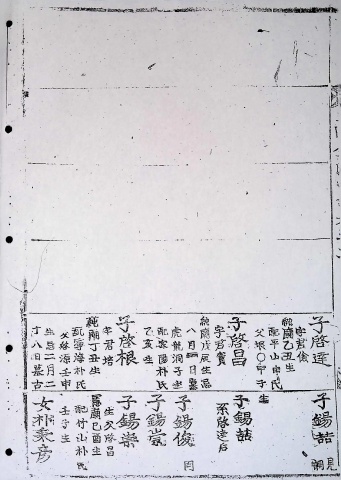 子啓達
字君倫
純廟乙丑生
配平山申氏
父㫰〇甲子生
子啓昌
字君寶
純廟戊辰生忌
八月一日墓
虎龍洞子坐
配密陽朴氏
乙亥生
子啓根
字君培
純廟丁丑生
配寧海朴氏
父啓源壬申
生忌二月二
十八日墓古
子錫喆
見
嗣
子錫喆
系啓達后
子錫俊
子錫崇
子錫崇
生父啓昌
憲廟己酉生
配竹山朴氏
壬子生
女朴秉彦